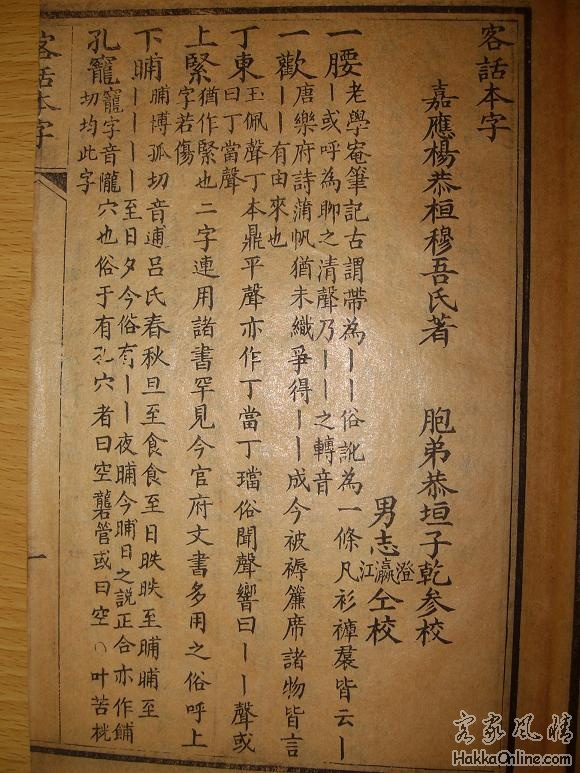 客話本字
嘉應楊恭桓穆吾氏著 胞弟恭垣子乾參校
男志澄瀛江仝校
一腰 老學庵筆記古謂帶為丨丨俗訛為一條凡衫褲裠皆云丨
丨或呼為聊之清聲乃丨丨之轉音
一歡 唐樂府詩蒲帆猶未織爭得丨丨成今被褥簾席諸物皆言
丨丨有由來也
丁東 玉佩聲丁本鼎平聲亦作丁當丁璫俗聞聲響曰丨丨聲或
曰丁當聲
上緊 猶作緊也二字連用諸書罕見今官府文書多用之俗呼上
字若傷
下晡 晡博孤切音逋呂氏春秋旦至食食至日昳昳至晡晡至
丨丨丨丨至日夕今俗有丨丨夜晡今晡日之說正合亦作餔
孔竉 竉字音 穴也俗于有孔穴者曰空礱管或曰空 叶苦桄
切均此字
客話本字
一
客家風情
HakkaOnline.com